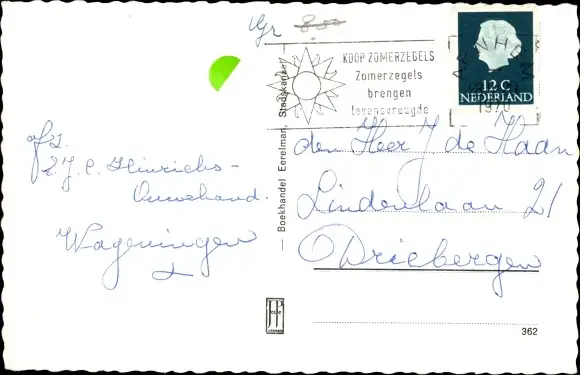 Vgr 800
KOOP ZOMERZEGELS
Zomerzegels
brengen
levensvreugde
ARNHEM
1970
12 C
NEDERLAND
afz.
Heinrichs-
Ouwehand.
Wageningen
Boekhandel Eerelman, Stadskanaal
den Heer J de Haan
Lindenlaan 21
Driebergen
362